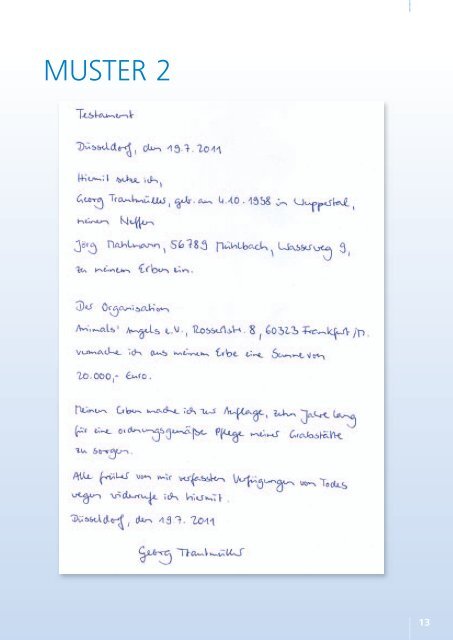 MUSTER 2
Testament
Düsseldorf, den 19.7.2011
Hiermit setze ich,
Georg Trantmüller, geb. am 4.10.1938 in Wuppertal,
meinen Neffen
Jörg Mahlmann, 56789 Mühlbach, Wasserweg 9,
zu meinem Erben ein.
Der Organisation
Animals' Angels e.V., Rossertstr. 8, 60323 Frankfurt/M.
vermache ich aus meinem Erbe eine Summe von
20.000,- Euro.
Meinen Erben mache ich zur Auflage, zehn Jahre lang
für eine ordnungsgemäße Pflege meiner Grabstätte
zu sorgen.
Alle früher von mir verfassten Verfügungen von Todes
wegen widerrufe ich hiermit.
Düsseldorf, den 19.7.2011
Georg Trantmüller
13